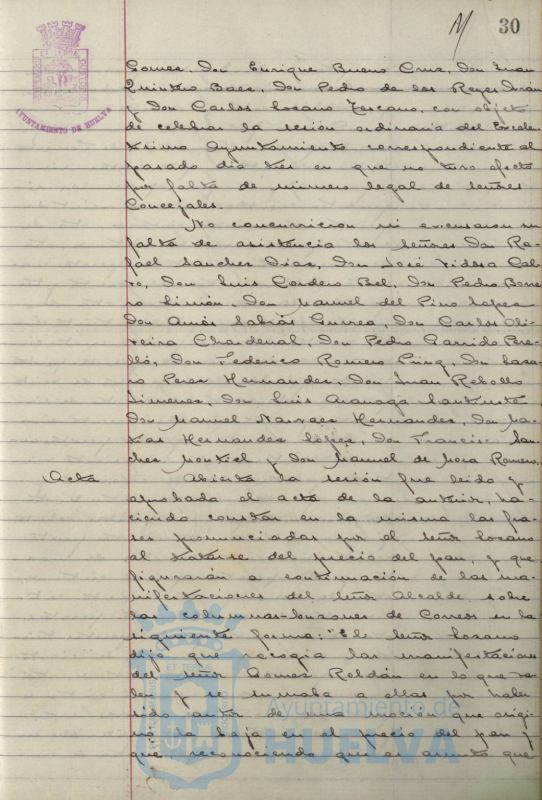 30
AYUNTAMIENTO DE HUELVA
Gomez, Don Enrique Bueno Cruz, Don Juan
Quintero Baez, Don Pedro de los Reyes
y Don Carlos Lozano Toscano, con objeto
de celebrar la sesión ordinaria del Excelen
tisimo Ayuntamiento correspondiente al
pasado dia tres en que no tuvo efecto
por falta de número legal de señores
Concejales.
No concurrieron ni excusaron su
falta de asistencia los señores Don Ra-
fael Sanchez Diaz, Don José Vidosa Cal-
vo, Don Luis Cordero Bel, Don Pedro Borre
ro Limón, Don Manuel del Pino Lopez
Don Amós Sabrás Gurrea, Don Carlos Oli-
veira Chardenal, Don Pedro Garrido Pere-
lló, Don Federico Romero Don Laza-
ro Perez Hernandez, Don Juan Rebollo
Jimenez, Don Luis
Don Manuel Narvaez Hernandez, Don Ma-
tias Hernandez López, Don Francisco San-
chez Montiel y Don Manuel de Mora Romero.
Acta Abierta la sesión fue leida y
aprobada el acta de la anterior, ha-
ciendo constar en la misma las fra-
ses pronunciadas por el señor Lozano
al tratarse del precio del pan, y que
figurarán a continuación de las ma-
nifestaciones del señor Alcalde sobre
las columnas-buzones de Correos en la
siguiente forma: "El señor Lozano
dijo que recogia las manifestaciones
del señor Gomez Roldán en lo que va-
len y se sumaba a ellas por haber
sido autor de una moción que origi-
nó la baja en el precio del pan y
que reconociendo que es asunto que
Ayuntamiento de
HUELVA